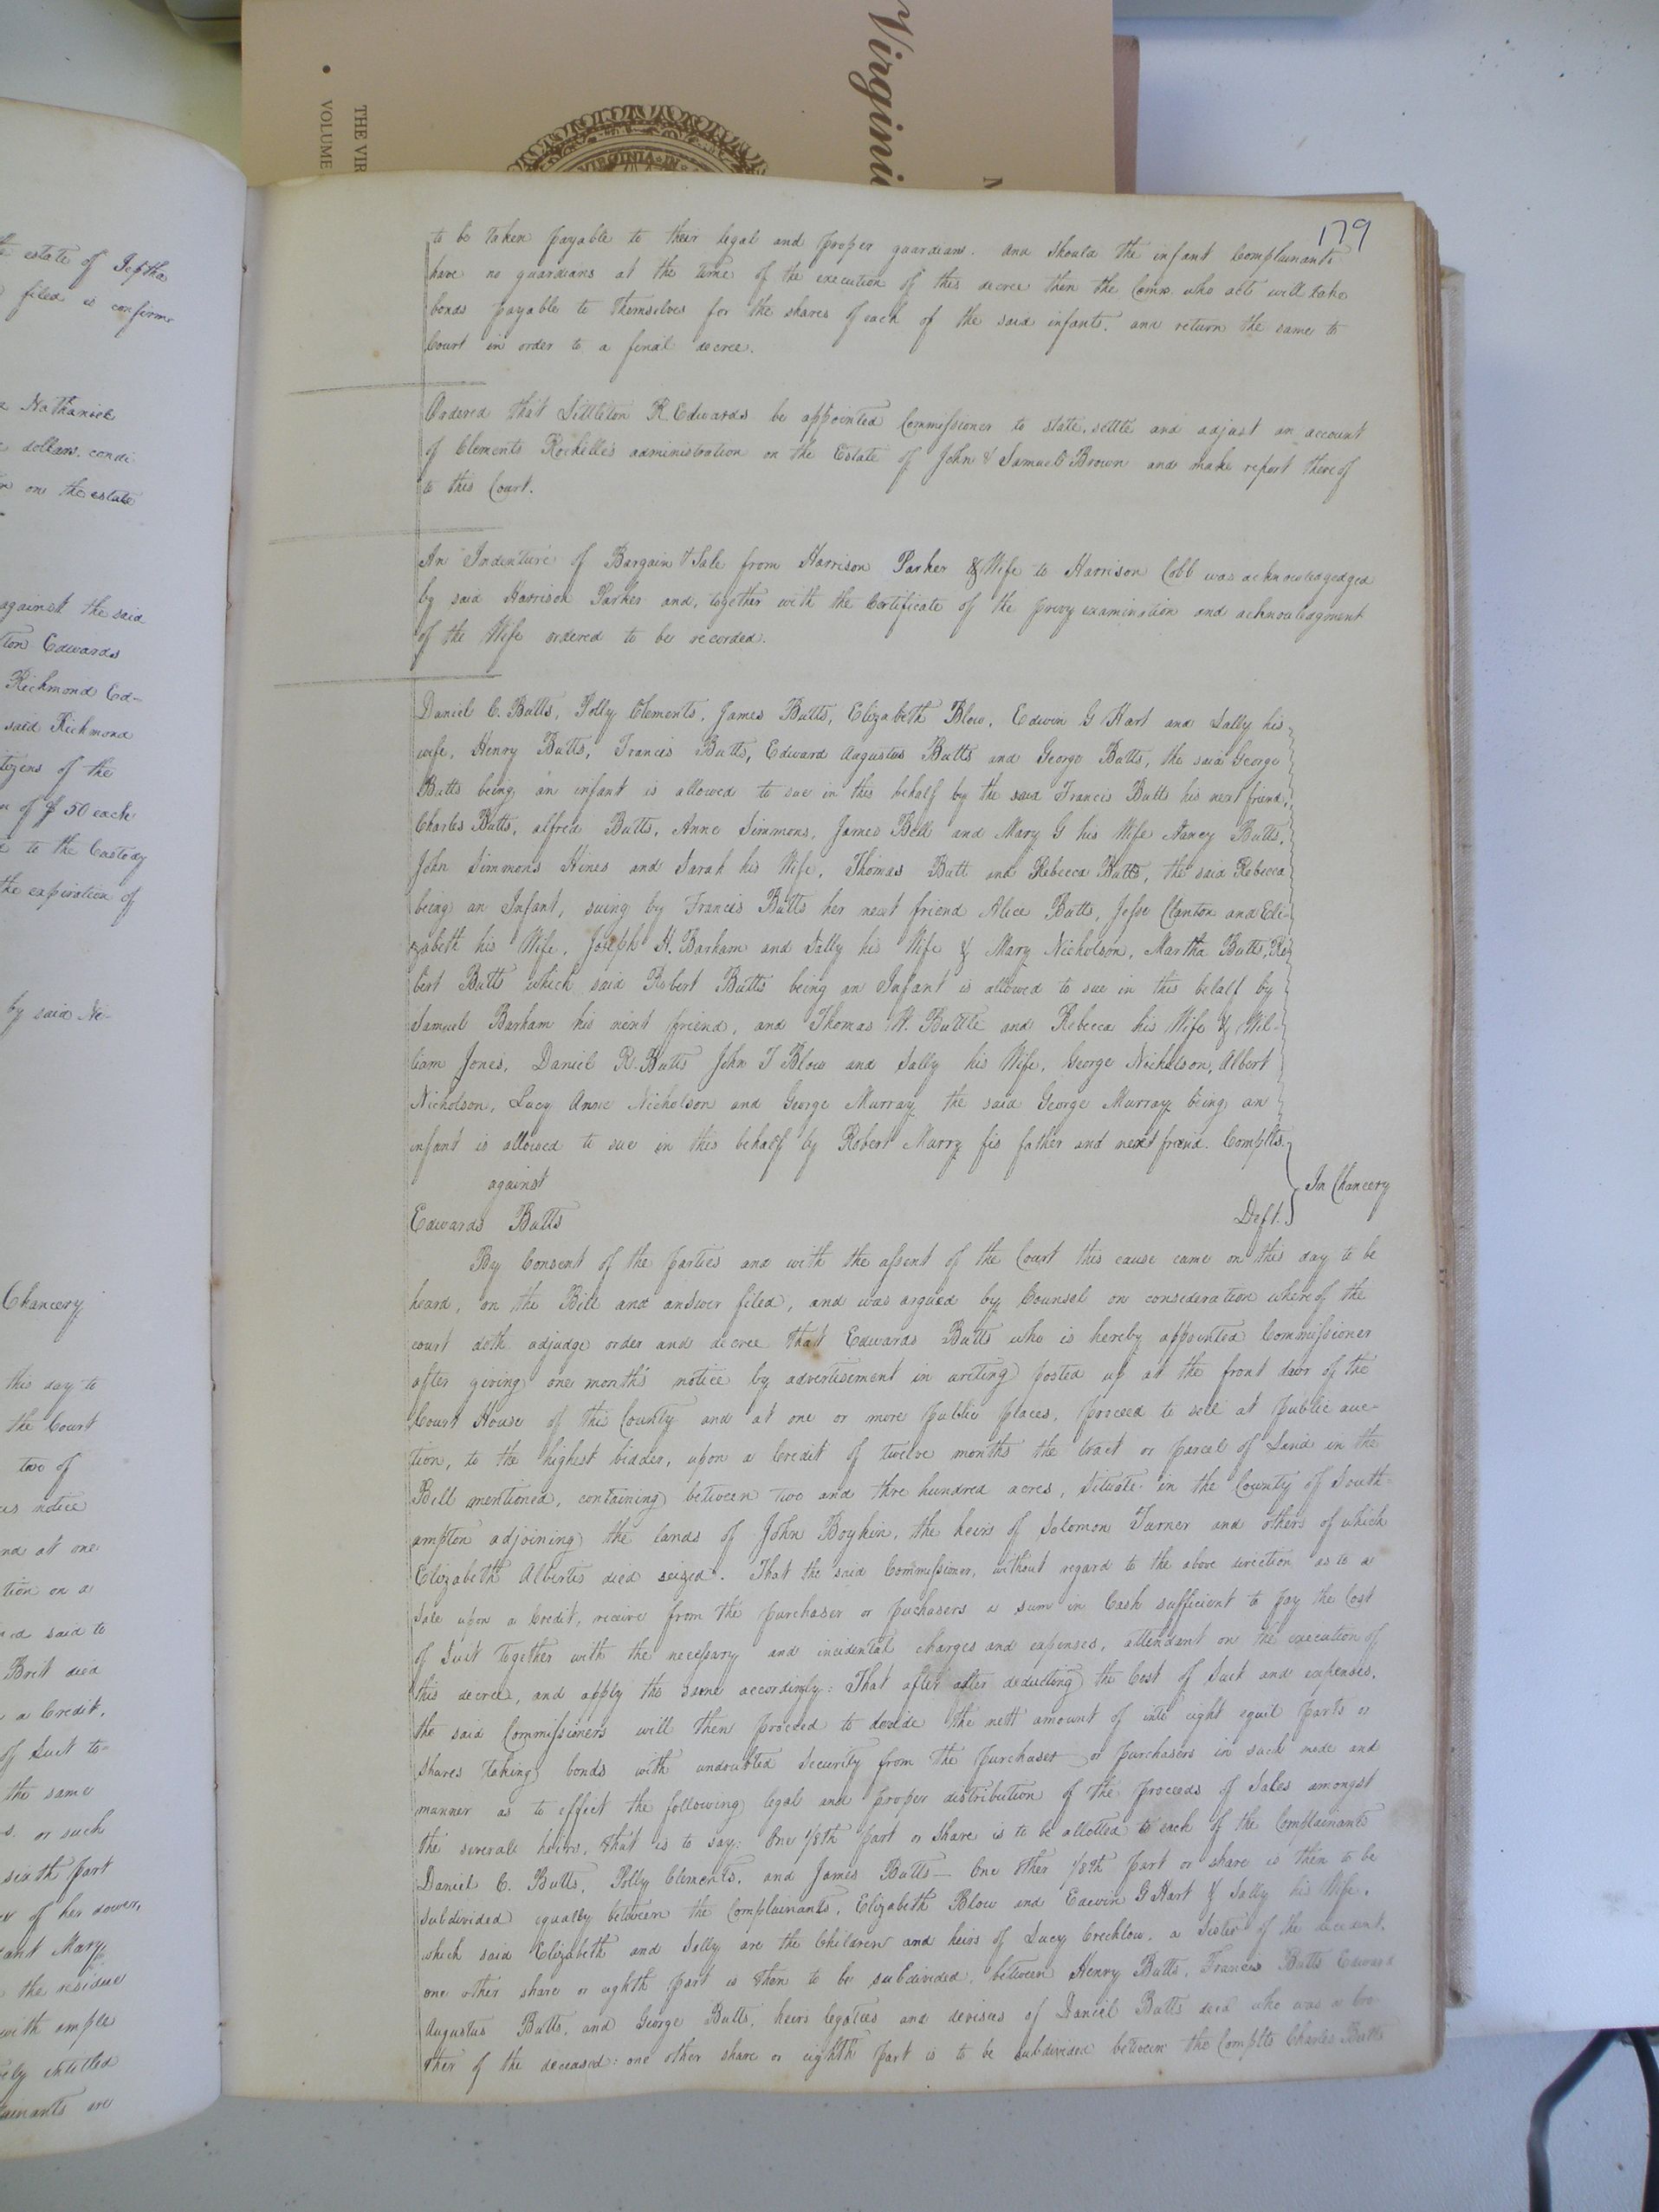 Virgini
THE VIR
VOLUME
VIRGINIA IN
179
to be taken payable to their legal and proper guardians. and should the infant Complainants
have no guardians at the time of the execution of this decree then the Comrs. who act will take
bonds payable to themselves for the shares of each of the said infants. and return the same to
Court in order to a final decree.
Ordered that Littleton R Edwards be appointed Commissioner to state, settle and adjust an account
of Clements Rochelle's administration on the Estate of John & Samuel Brown and make report thereof
to this Court.
An Indenture of Bargain & Sale from Harrison Parker & Wife to Harrison Cobb was acknowledgedged
by said Harrison Parker and, together with the Certificate of the privy examination and acknowledgment
of the Wife ordered to be recorded.
Daniel C. Butts, Polly Clements, James Butts, Elizabeth Blow, Edwin G Hart and Sally his
wife, Henry Butts, Francis Butts, Edward Augustus Butts and George Butts, the said George
Butts being an infant is allowed to sue in this behalf by the said Francis Butts his next friend,
Charles Butts, alfred Butts, Anne Simmons, James Bell and Mary G his Wife Nancy Butts,
John Simmons Hines and Sarah his Wife, Thomas Butt and Rebecca Butts, the said Rebecca
being an Infant, suing by Francis Butts her next friend Alice Butts, Jesse Clanton and Eli-
zabeth his Wife, Joseph H. Barham and Sally his Wife & Mary Nicholson, Martha Butts, Ro-
bert Butts which said Robert Butts being an Infant is allowed to sue in this behalf by
Samuel Barham his next friend, and Thomas W. Buttle and Rebecca his Wife & Wil-
liam Jones, Daniel R. Butts John T Blow and Sally his Wife, George Nicholson, Albert
Nicholson, Lucy Anne Nicholson and George Murray the said George Murray being an
infant is allowed to sue in this behalf by Robert Murry his father and next friend. Complts.
against
In Chancery
Edwards Butts Deft.
By Consent of the parties and with the assent of the Court this cause came on this day to be
heard, on the Bill and answer filed, and was argued by Counsel on consideration whereof the
court doth adjudge order and decree that Edwards Butts who is hereby appointed Commissioner
after giving one month's notice by advertisement in writing posted up at the front door of the
Court House of this County and at one or more public places, proceed to sell at public auc-
tion, to the highest bidder, upon a Credit of twelve months the tract or parcel of Land in the
Bill mentioned, containing between two and thre hundred acres, Situate in the County of South-
ampton adjoining the lands of John Boykin, the heirs of Solomon Turner and others of which
Elizabeth Albertis died seized. That the said Commissioner, without regard to the above direction as to a
Sale upon a Credit, receive from the purchaser or puchasers a sum in Cash sufficient to pay the Cost
of Suit together with the necessary and incidental charges and expenses, attendant on the execution of
this decree, and apply the same accordingly: That after after deducting the Cost of Suit and expenses,
the said Commissioners will then proceed to devide the nett amount of into eight equil parts or
shares taking bonds with undoubted Security from the purchaser or purchasers in such mode and
manner as to effect the following legal and proper distribution of the proceeds of Sales amongst
the severals heirs, that is to say: One 1/8th part or share is to be allotted to each of the Complainants
Daniel C. Butts, Polly Clements, and James Butts— One other 1/8th part or share is then to be
subdivided equally between the Complainants, Elizabeth Blow and Edwin G Hart & Sally his Wife,
which said Elizabeth and Sally are the Children and heirs of Lucy Crecklow, a Sister of the decedent,
one other share or eighth part is then to be subdivided, between Henry Butts, Francis Butts Edward
Augustus Butts, and George Butts, heirs legatees and devisees of Daniel Butts decd who was a bro-
ther of the deceased: one other share or eighth part is to be subdivided between the Complts Charles Butts
the estate of Jeptha
filed is confirm
Nathaniel
dollars. condi
on the estate
against the said
ton Edwards
Richmond Ed-
said Richmond
tizens of the
of $ 50 each
to the Custody
the expiration of
by said Ne-
Chancery
this day to
the Court
two of
notice
and at one
tion on a
said to
Brit died
a Credit,
of Suit to-
the same
or such
sixth part
of her dower,
ant Mary
the residue
with ample
ely entitled
ainants are